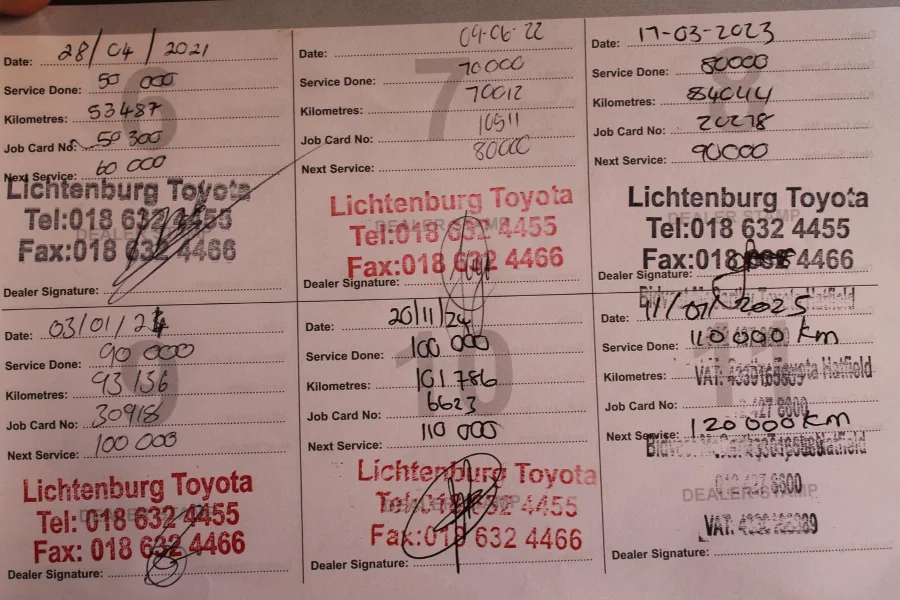 6
Date: 28/04/2021
Service Done: 50 000
Kilometres: 53487
Job Card No: 50300
Next Service: 60 000
Lichtenburg Toyota
Tel:018 632 4455
Fax:018 632 4466
DEALER STAMP
Dealer Signature:
7
Date: 09-06-22
Service Done: 70000
Kilometres: 70012
Job Card No: 10511
Next Service: 80000
Lichtenburg Toyota
Tel:018 632 4455
Fax:018 632 4466
DEALER STAMP
Dealer Signature:
8
Date: 17-03-2023
Service Done: 80000
Kilometres: 84044
Job Card No: 20278
Next Service: 90000
Lichtenburg Toyota
Tel:018 632 4455
Fax:018 632 4466
DEALER STAMP
Dealer Signature:
9
Date: 03/01/24
Service Done: 90 000
Kilometres: 93136
Job Card No: 30918
Next Service: 100 000
Lichtenburg Toyota
Tel: 018 632 4455
Fax: 018 632 4466
DEALER STAMP
Dealer Signature:
10
Date: 20/11/24
Service Done: 100 000
Kilometres: 101786
Job Card No: 6623
Next Service: 110 000
Lichtenburg Toyota
Tel:018 632 4455
Fax:018 632 4466
DEALER STAMP
Dealer Signature:
11
Date: 11/07/2025
Service Done: 110 000 km
Kilometres:
Job Card No:
Next Service: 120 000 km
Toyota Hatfield
VAT:
DEALER STAMP
VAT:
Dealer Signature: